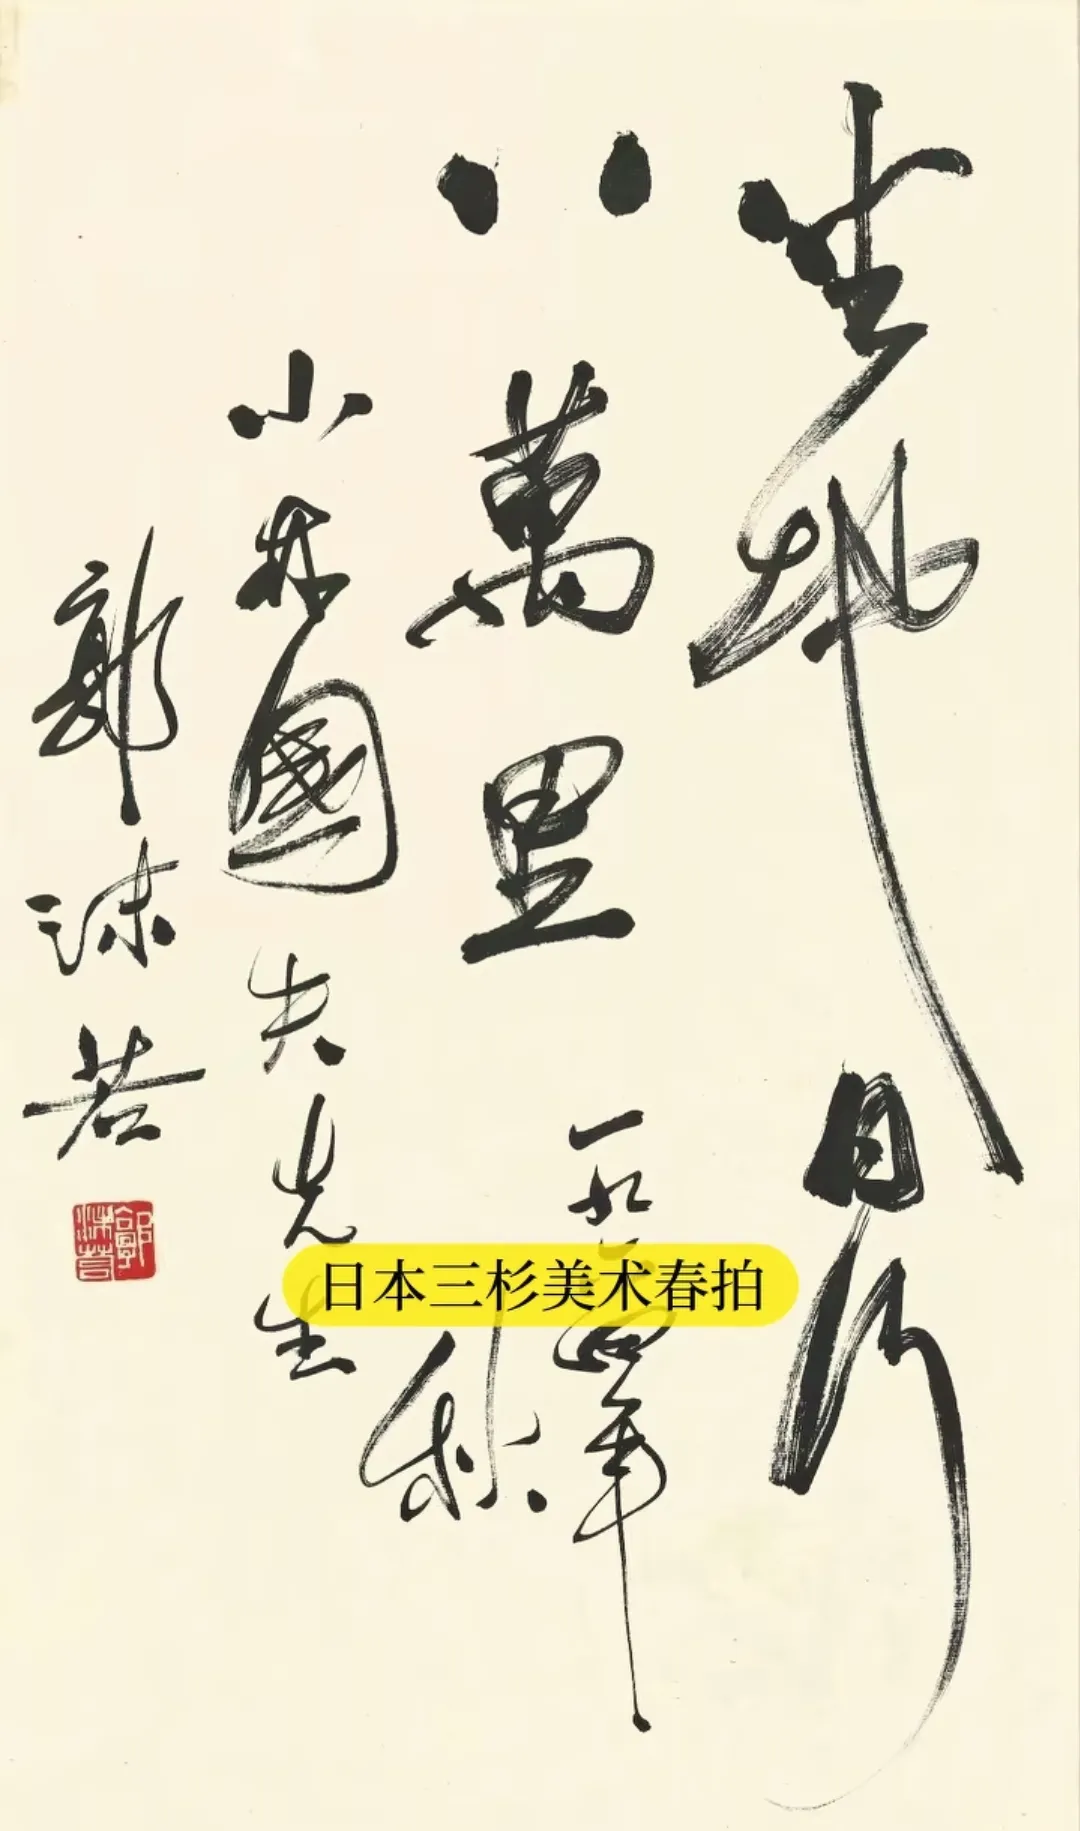 坐地日行
八萬里
一九六四年
秋
小林國夫先生
郭沫若
郭沫若
日本三杉美术春拍